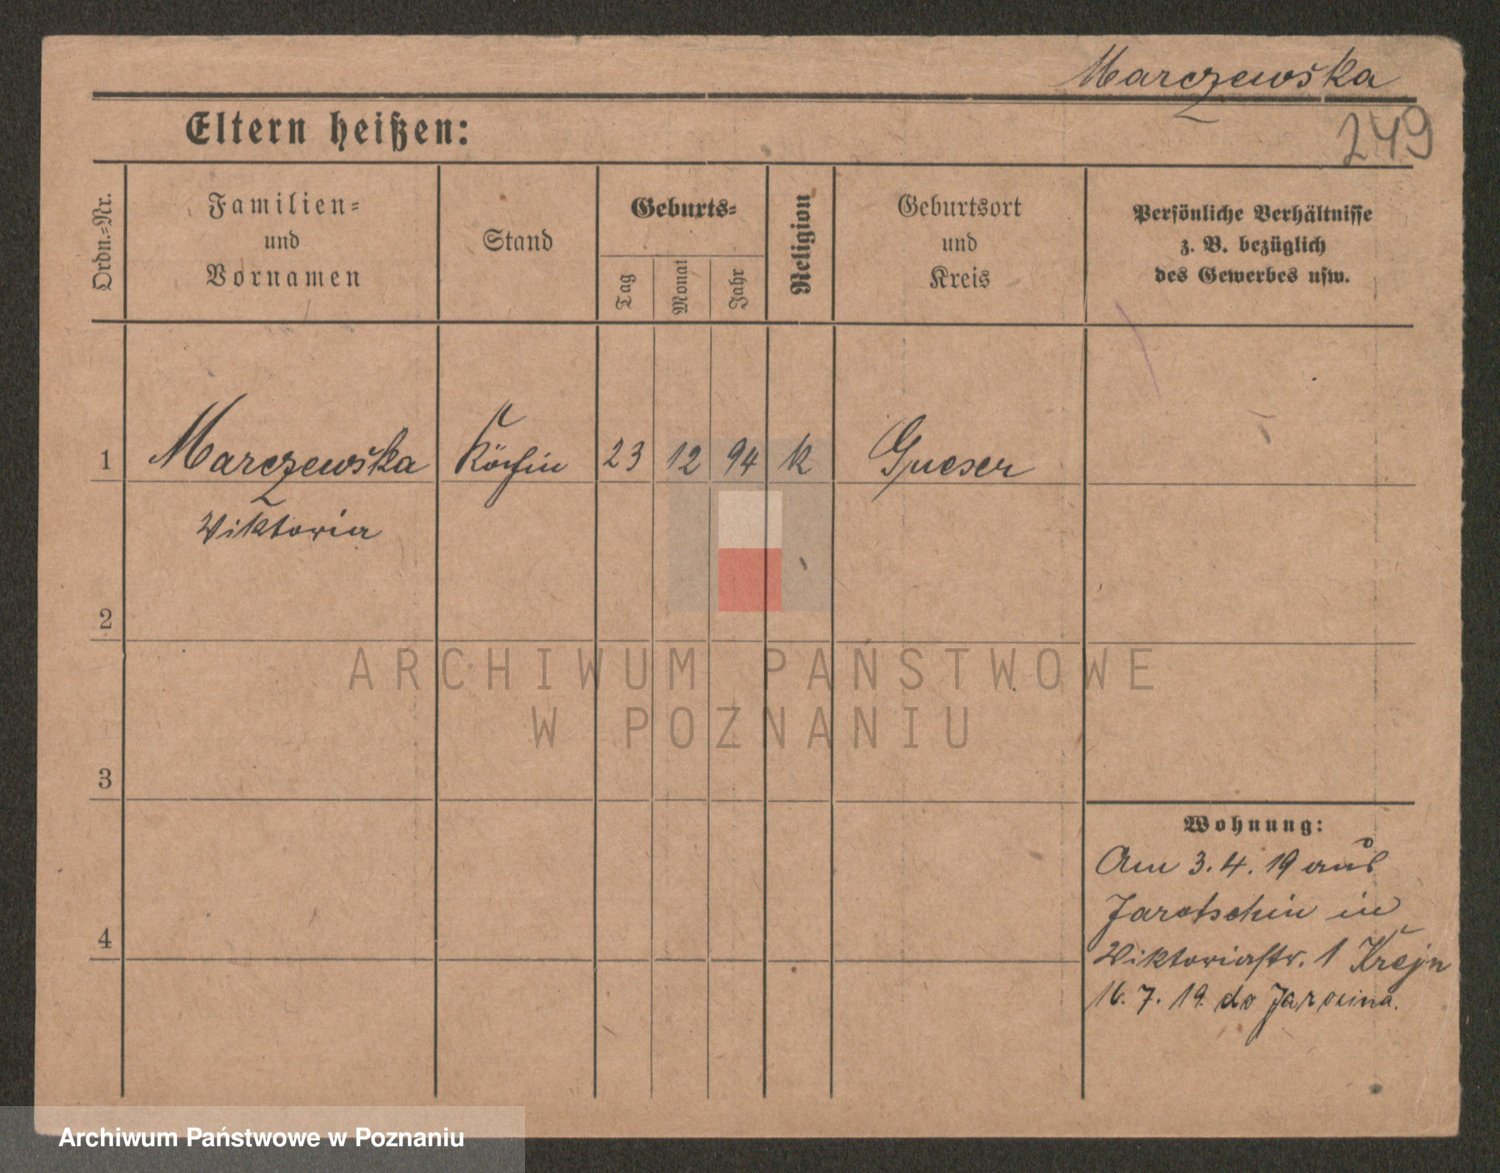 Marczewska
249
Eltern heißen:
Ordn.-Nr.
Familien-
und
Vornamen
Stand
Geburts-
Tag
Monat
Jahr
Religion
Geburtsort
und
Kreis
Persönliche Verhältnisse
z. B. bezüglich
des Gewerbes usw.
1 Marczewska Köchin 23 12 94 k
Viktoria
2
ARCHIWUM PAŃSTWOWE
W POZNANIU
3
Wohnung:
Am 3.4.19 aus
Jarotschin in
4
Viktoriastr. 1
16.7.19 do Jarocina.
Archiwum Państwowe w Poznaniu